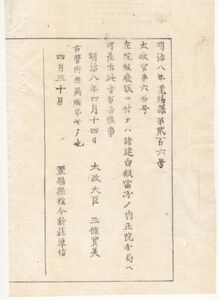 明治八年置賜縣第貳百六号
太政官第六拾号
左院被廢候ニ付テハ諸建白鎖當分ノ内正院分局ヘ
可差出此旨布告候事
明治八年四月十四日
太政大臣三條實美
右管内無漏觸示スル也
四月三十日
置賜縣權令新莊厚信